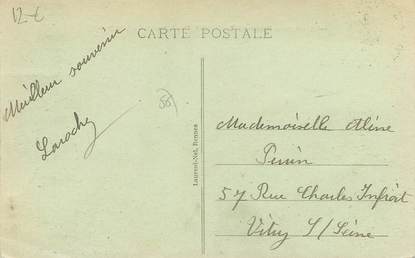 12-€
CARTE POSTALE
Meilleur souvenir
Laroche
(58)
Laurent-Nel, Rennes
Mademoiselle Aline
Perrin
57 Rue Charles Infroit
Vitry S/Seine